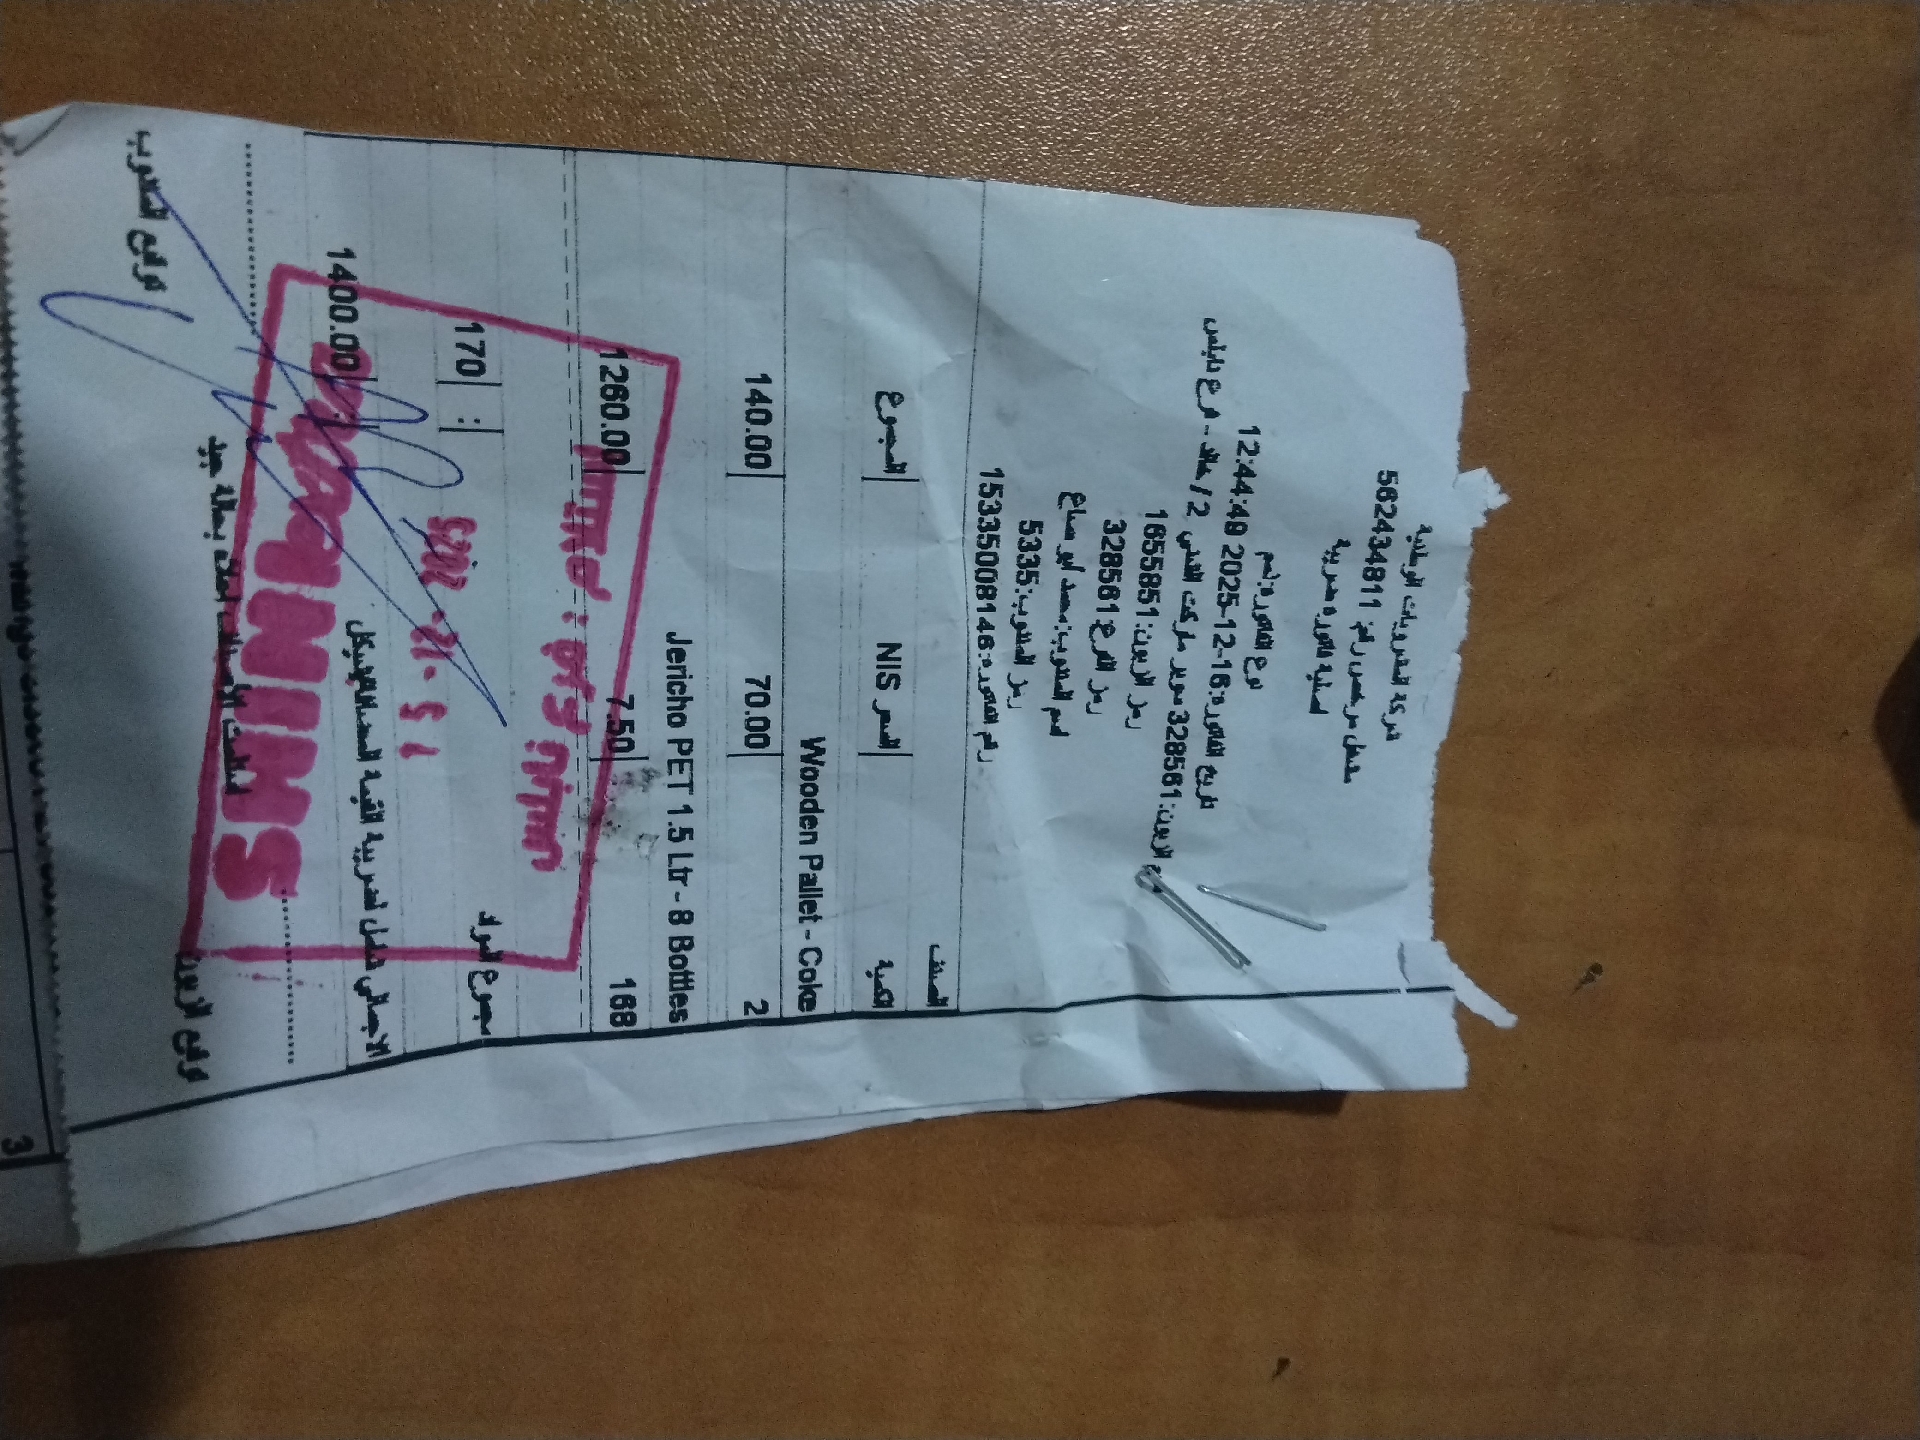 شركة المشروبات الوطنية
مشغل مرخص رقم: 562434811
اصلية فاتورة ضريبية
نوع الفاتورة:ذمم
تاريخ الفاتورة:2025-12-16 12:44:49
328561:سوبر ماركت الثقتي 2 / خالد - فرع نابلس
رمز الزبون:1655851
رمز الفرع:328561
اسم المندوب:محمد ابو صباع
رمز المندوب:5335
رقم الفاتورة:15335008146
الصنف
الكمية السعر NIS المجموع
Wooden Pallet - Coke
2 70.00 140.00
Jericho PET 1.5 Ltr - 8 Bottles
168 7.50 1260.00
مجموع المواد : 170
الاجمالي شامل لضريبة القيمة المضافة
1400.00
بحالة جيدة
توقيع الزبون توقيع المندوب
3